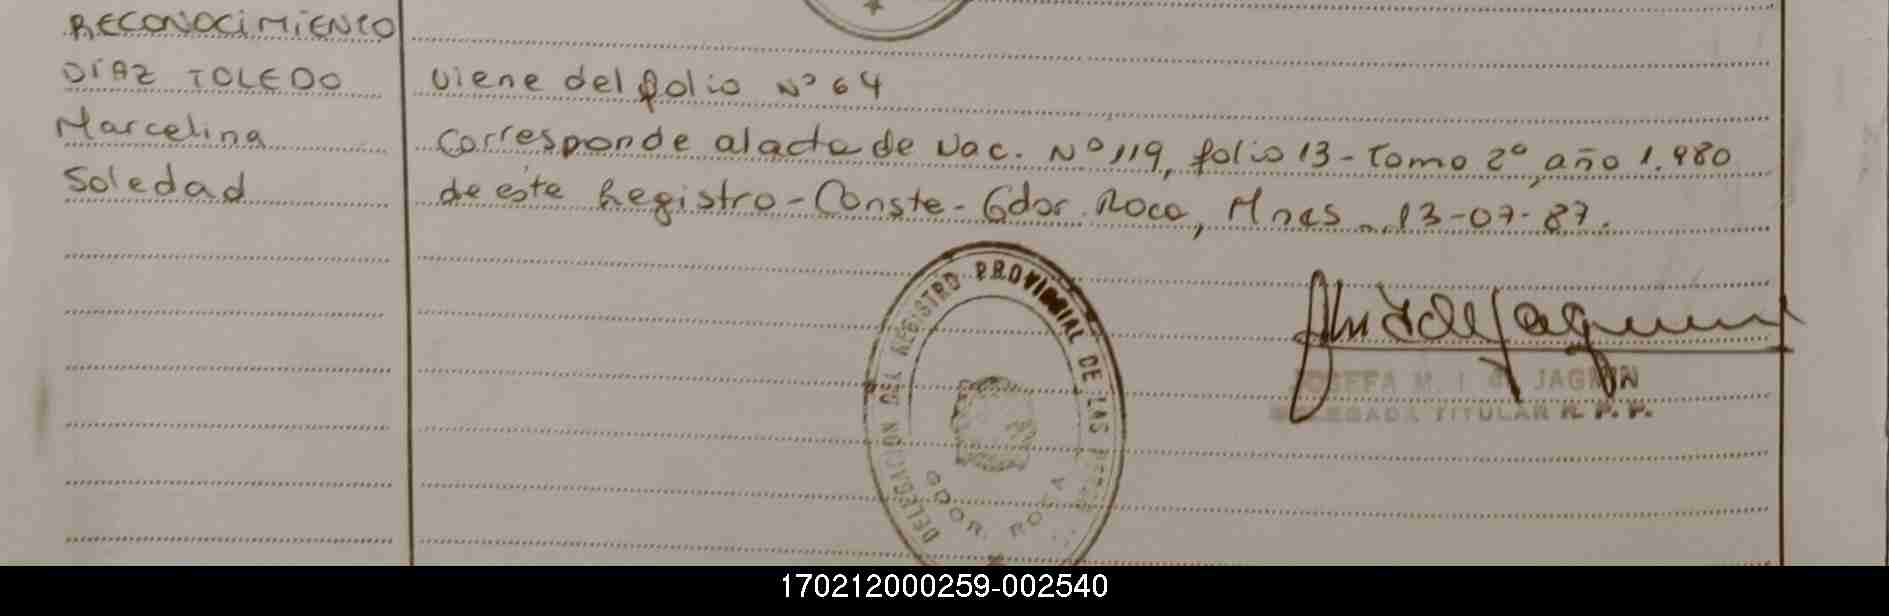 RECONOCIMIENTO
DÍAZ TOLEDO
Marcelina
Soledad
viene del folio Nº 64
corresponde al acta de Nac. Nº 119, folio 13 - Tomo 2º, año 1.980
de este Registro - Conste - Gdor. Roca, Mnes., 13-07-87.
DELEGACIÓN DEL REGISTRO PROVINCIAL DE LAS
GDOR. ROCA
JOSEFA M. I. de JAGMIN
DELEGADA TITULAR R. P. P.
170212000259-002540